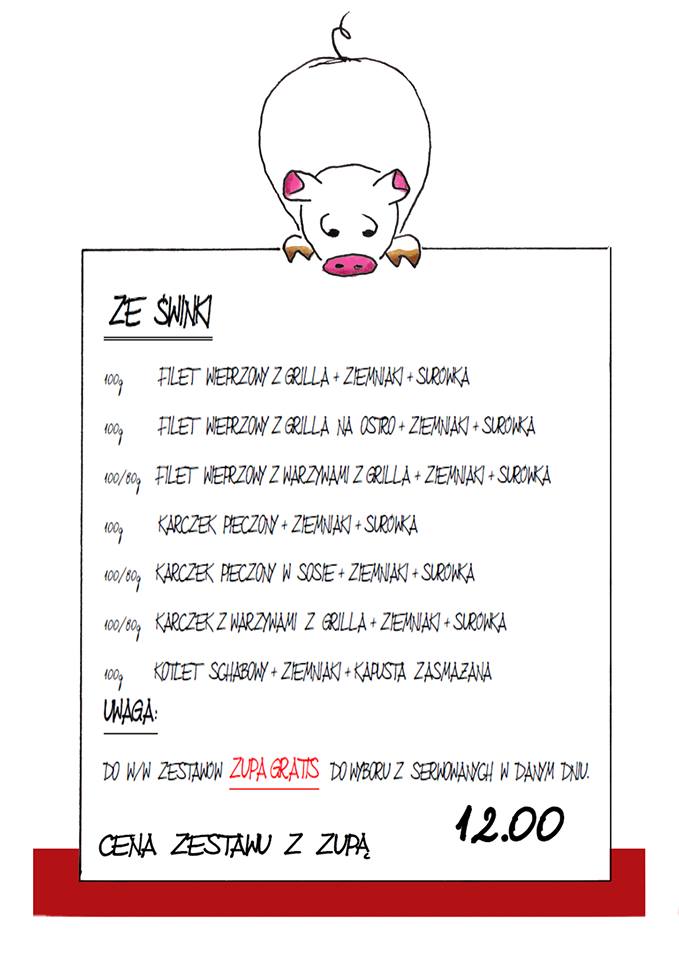 ZE ŚWINKI
100g FILET WIEPRZOWY Z GRILLA + ZIEMNIAKI + SURÓWKA
100g FILET WIEPRZOWY Z GRILLA NA OSTRO + ZIEMNIAKI + SURÓWKA
100/80g FILET WIEPRZOWY Z WARZYWAMI Z GRILLA + ZIEMNIAKI + SURÓWKA
100g KARCZEK PIECZONY + ZIEMNIAKI + SURÓWKA
100/80g KARCZEK PIECZONY W SOSIE + ZIEMNIAKI + SURÓWKA
100/80g KARCZEK Z WARZYWAMI Z GRILLA + ZIEMNIAKI + SURÓWKA
100g KOTLET SCHABOWY + ZIEMNIAKI + KAPUSTA ZASMAŻANA
UWAGA:
DO W/W ZESTAWÓW ZUPA GRATIS DO WYBORU Z SERWOWANYCH W DANYM DNIU.
CENA ZESTAWU Z ZUPĄ 12.00